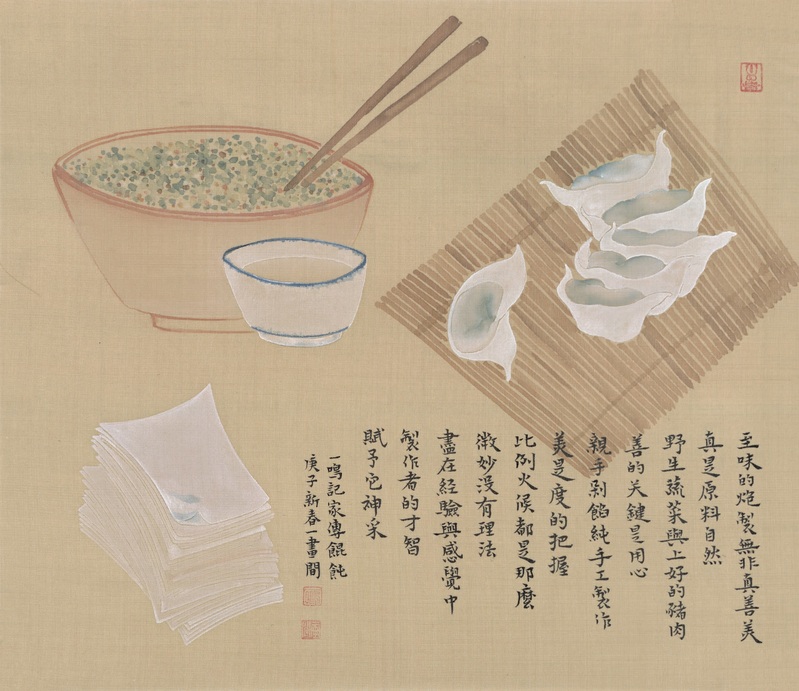 至味的炮製無非真善美
真是原料自然
野生蔬菜與上好的豬肉
善的关鍵是用心
親手剁餡純手工製作
美是度的把握
比例火候都是那麼
微妙没有理法
盡在經驗與感覺中
製作者的才智
賦予它神采
一鳴記家傳餛飩
庚子新春一畫間